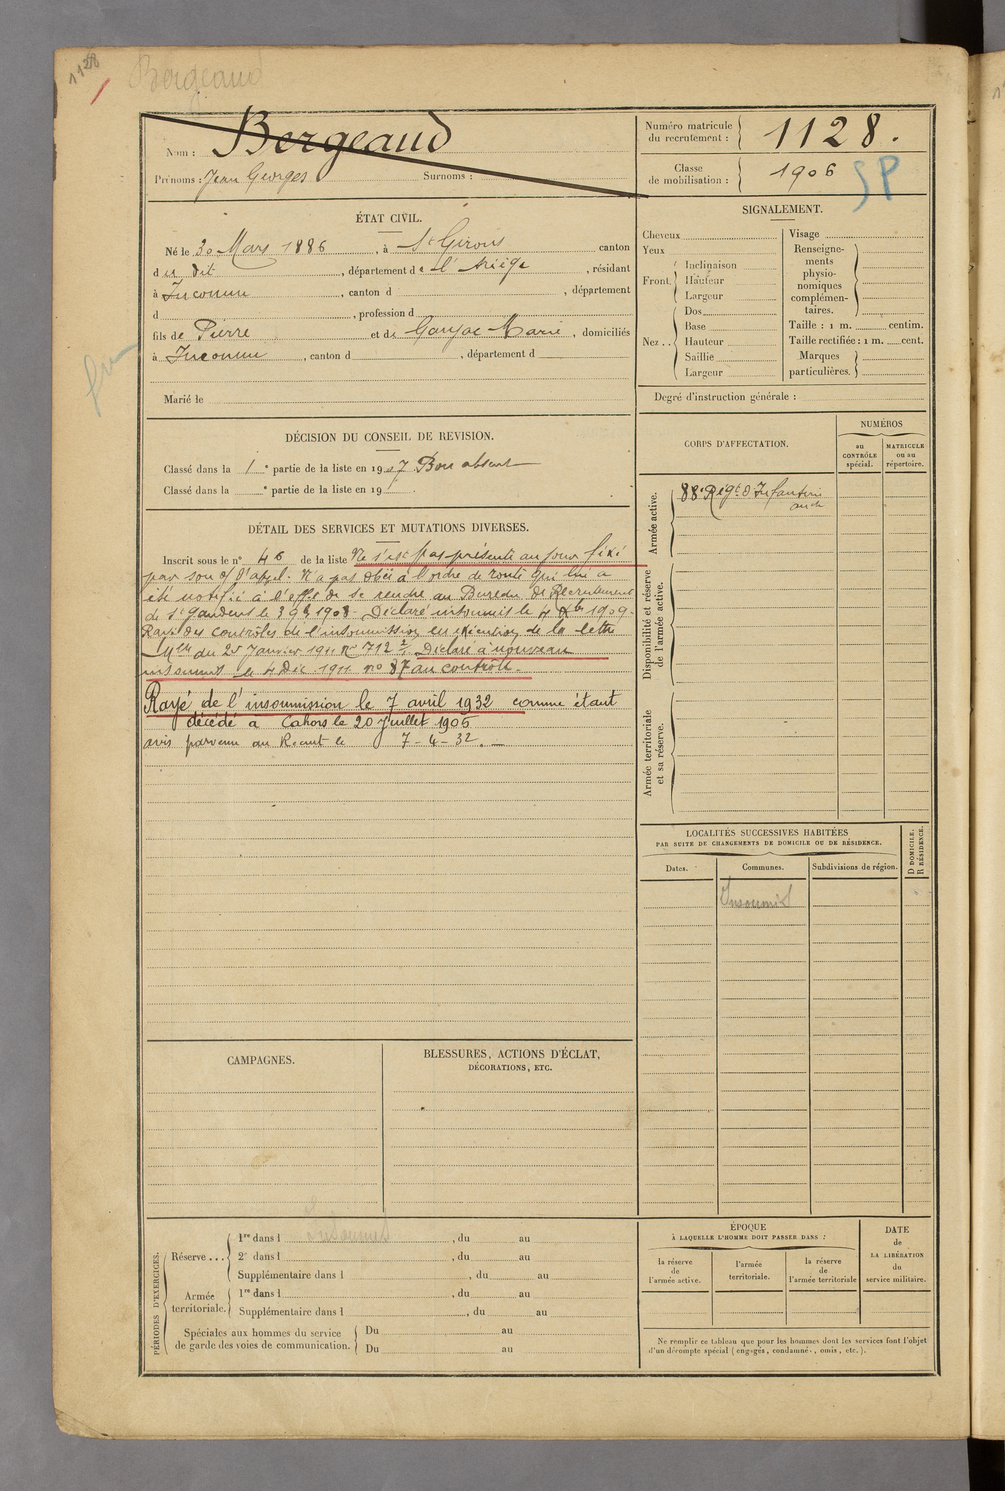 1128
Bergeaud
Nom : Bergeaud
Prénoms : Jean Georges Surnoms :
Numéro matricule du recrutement : 1128.
Classe de mobilisation : 1906
SP
ÉTAT CIVIL.
Né le 30 Mars 1886, à St Girons canton
du dit, département de l'Ariège, résidant
à Inconnu, canton d , département
d , profession d
fils de Pierre et de Gaujac Marie, domiciliés
à Inconnu, canton d , département d
Marié le
SIGNALEMENT.
Cheveux
Yeux
Front. Inclinaison
Hauteur
Largeur
Nez .. Dos
Base
Hauteur
Saillie
Largeur
Visage
Renseigne-
ments
physio-
nomiques
complémen-
taires.
Taille : 1 m. centim.
Taille rectifiée : 1 m. cent.
Marques
particulières.
Degré d'instruction générale :
DÉCISION DU CONSEIL DE REVISION.
Classé dans la 1e partie de la liste en 1907 Bon absent
Classé dans la e partie de la liste en 19 .
DÉTAIL DES SERVICES ET MUTATIONS DIVERSES.
Inscrit sous le n° 46 de la liste Ne s'est pas présenté au jour fixé
par son o/ d'appel. N'a pas obéi à l'ordre de route qui lui a
été notifié à l'effet de se rendre au Bureau de Recrutement
de St Gaudens le 3 9bre 1908. Déclaré insoumis le 4 Xbre 1909.
Rayé des contrôles de l'insoumission en exécution de la lettre
Mlle du 25 Janvier 1911 N° 712 Déclaré à nouveau
insoumis le 4 Déc 1911 n° 87 au contrôle.
Rayé de l'insoumission le 7 avril 1932 comme étant
décédé à Cahors le 20 Juillet 1905
avis parvenu au Recrut le 7-4-32.
CORPS D'AFFECTATION.
NUMÉROS
au CONTRÔLE spécial.
MATRICULE ou au répertoire.
Armée active.
88e Régt d'Infanterie
Auch
Disponibilité et réserve de l'armée active.
Armée territoriale et sa réserve.
LOCALITÉS SUCCESSIVES HABITÉES
PAR SUITE DE CHANGEMENTS DE DOMICILE OU DE RÉSIDENCE.
D DOMICILE. R RÉSIDENCE.
Dates. Communes. Subdivisions de région.
Insoumis
CAMPAGNES.
BLESSURES, ACTIONS D'ÉCLAT,
DÉCORATIONS, ETC.
PÉRIODES D'EXERCICES.
Réserve ... 1re dans l Insoumis , du au
2e dans l , du au
Supplémentaire dans l , du au
Armée territoriale. 1re dans l , du au
Supplémentaire dans l , du au
Spéciales aux hommes du service
de garde des voies de communication.
Du au
Du au
ÉPOQUE
À LAQUELLE L'HOMME DOIT PASSER DANS :
la réserve de l'armée active.
l'armée territoriale.
la réserve de l'armée territoriale
DATE
de
LA LIBÉRATION
du
service militaire.
Ne remplir ce tableau que pour les hommes dont les services font l'objet
d'un décompte spécial (engagés, condamnés, omis, etc.).